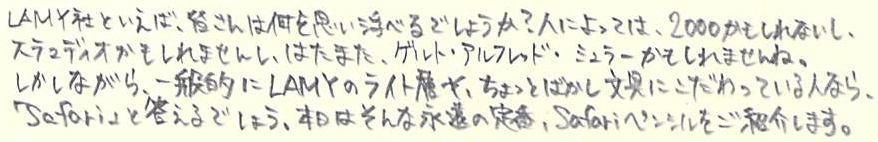 LAMY社といえば、皆さんは何を思い浮べるでしょうか?人によっては、2000かもしれないし、
ステュディオかもしれませんし、はたまた、ゲルト・アルフレッド・ミュラーかもしれませんね。
しかしながら、一般的にLAMYのライト層や、ちょっとばかし文具にこだわっている人なら、
「Safari」と答えるでしょう、本日はそんな永遠の定番、Safariペンシルをご紹介します。